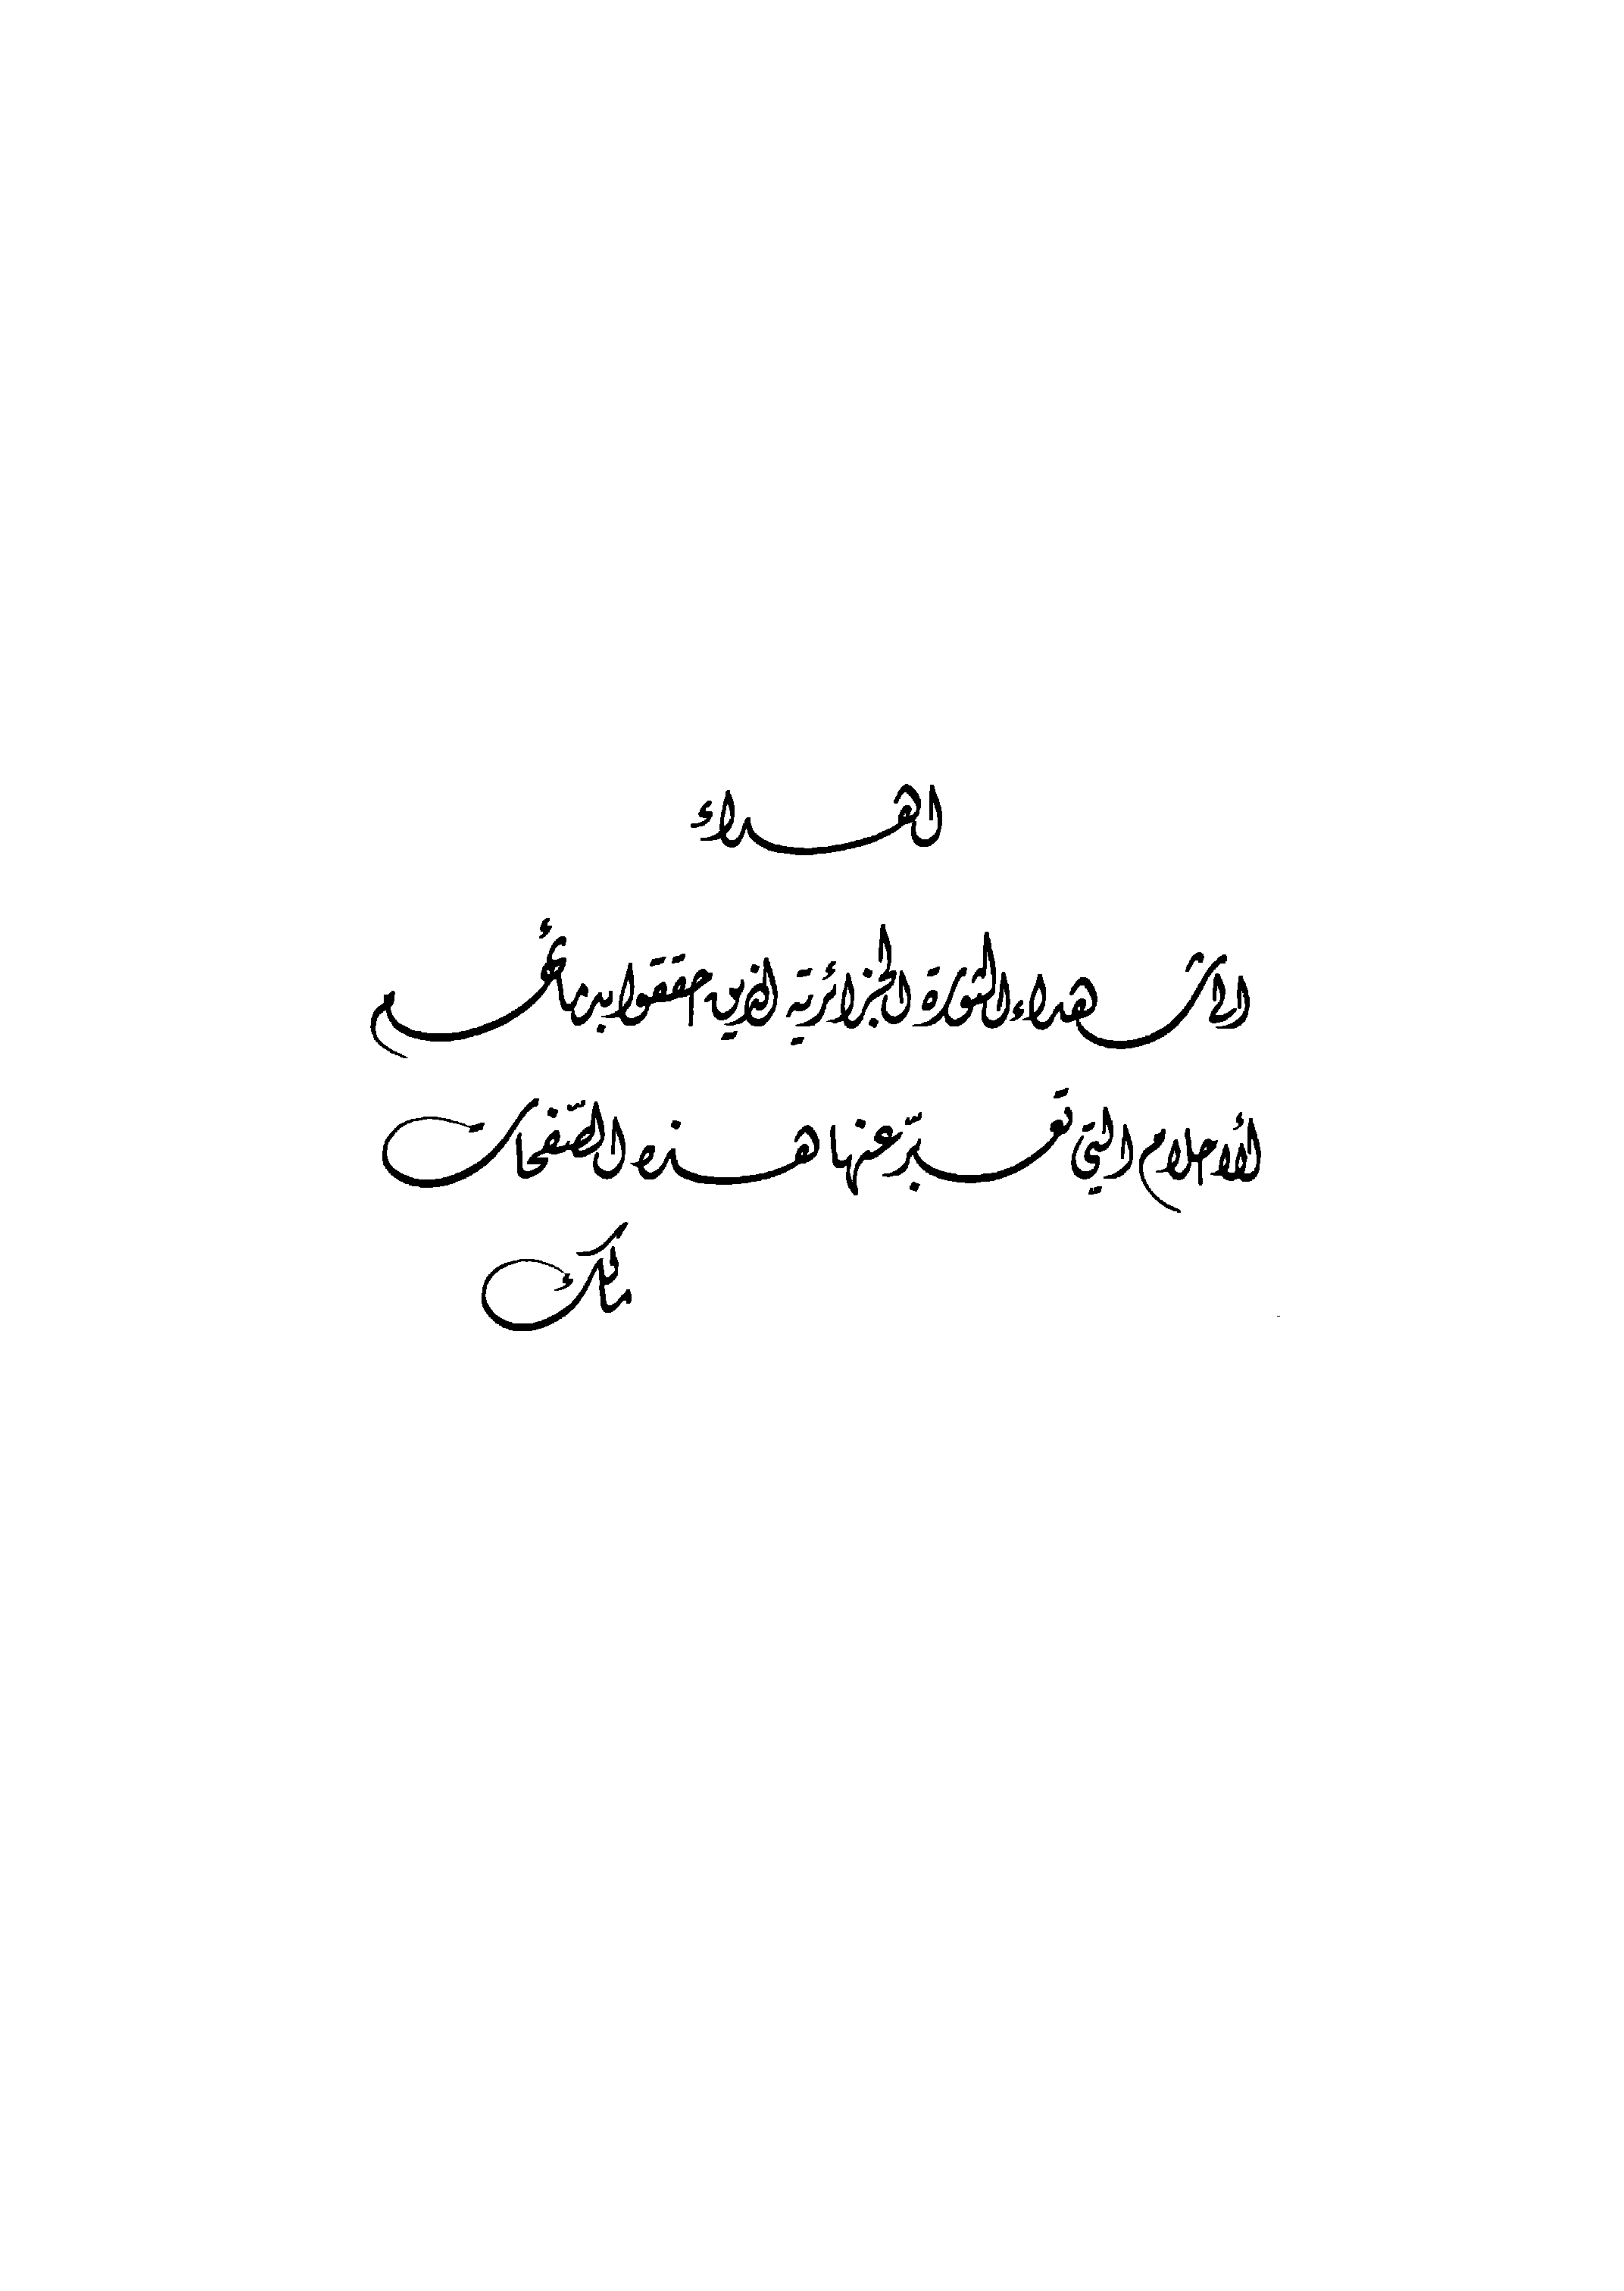 اهداء
الى شهداء الثورة الجزائرية الذين حققوا بدمائهم
الأحلام التي تعبّر عنها هذه الصّفحات
مالك